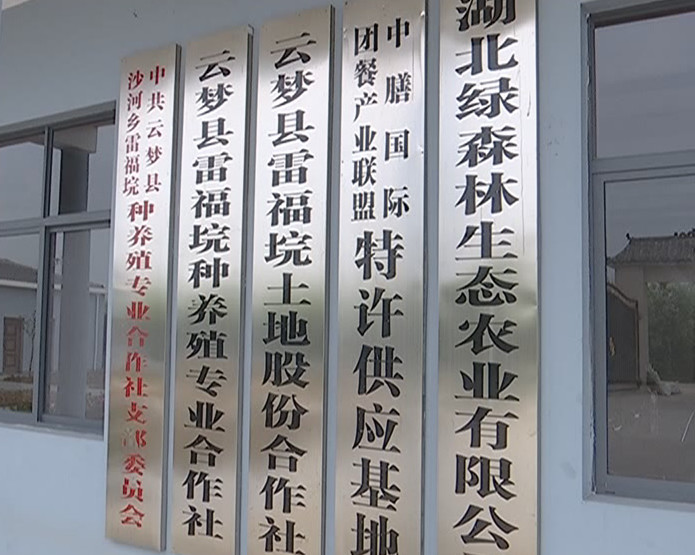 中共云梦县
沙河乡雷福垸
种养殖专业合作社支部委员会
云梦县雷福垸种养殖专业合作社
云梦县雷福垸土地股份合作社
中膳国际
团餐产业联盟
特许供应基地
湖北绿森林生态农业有限公